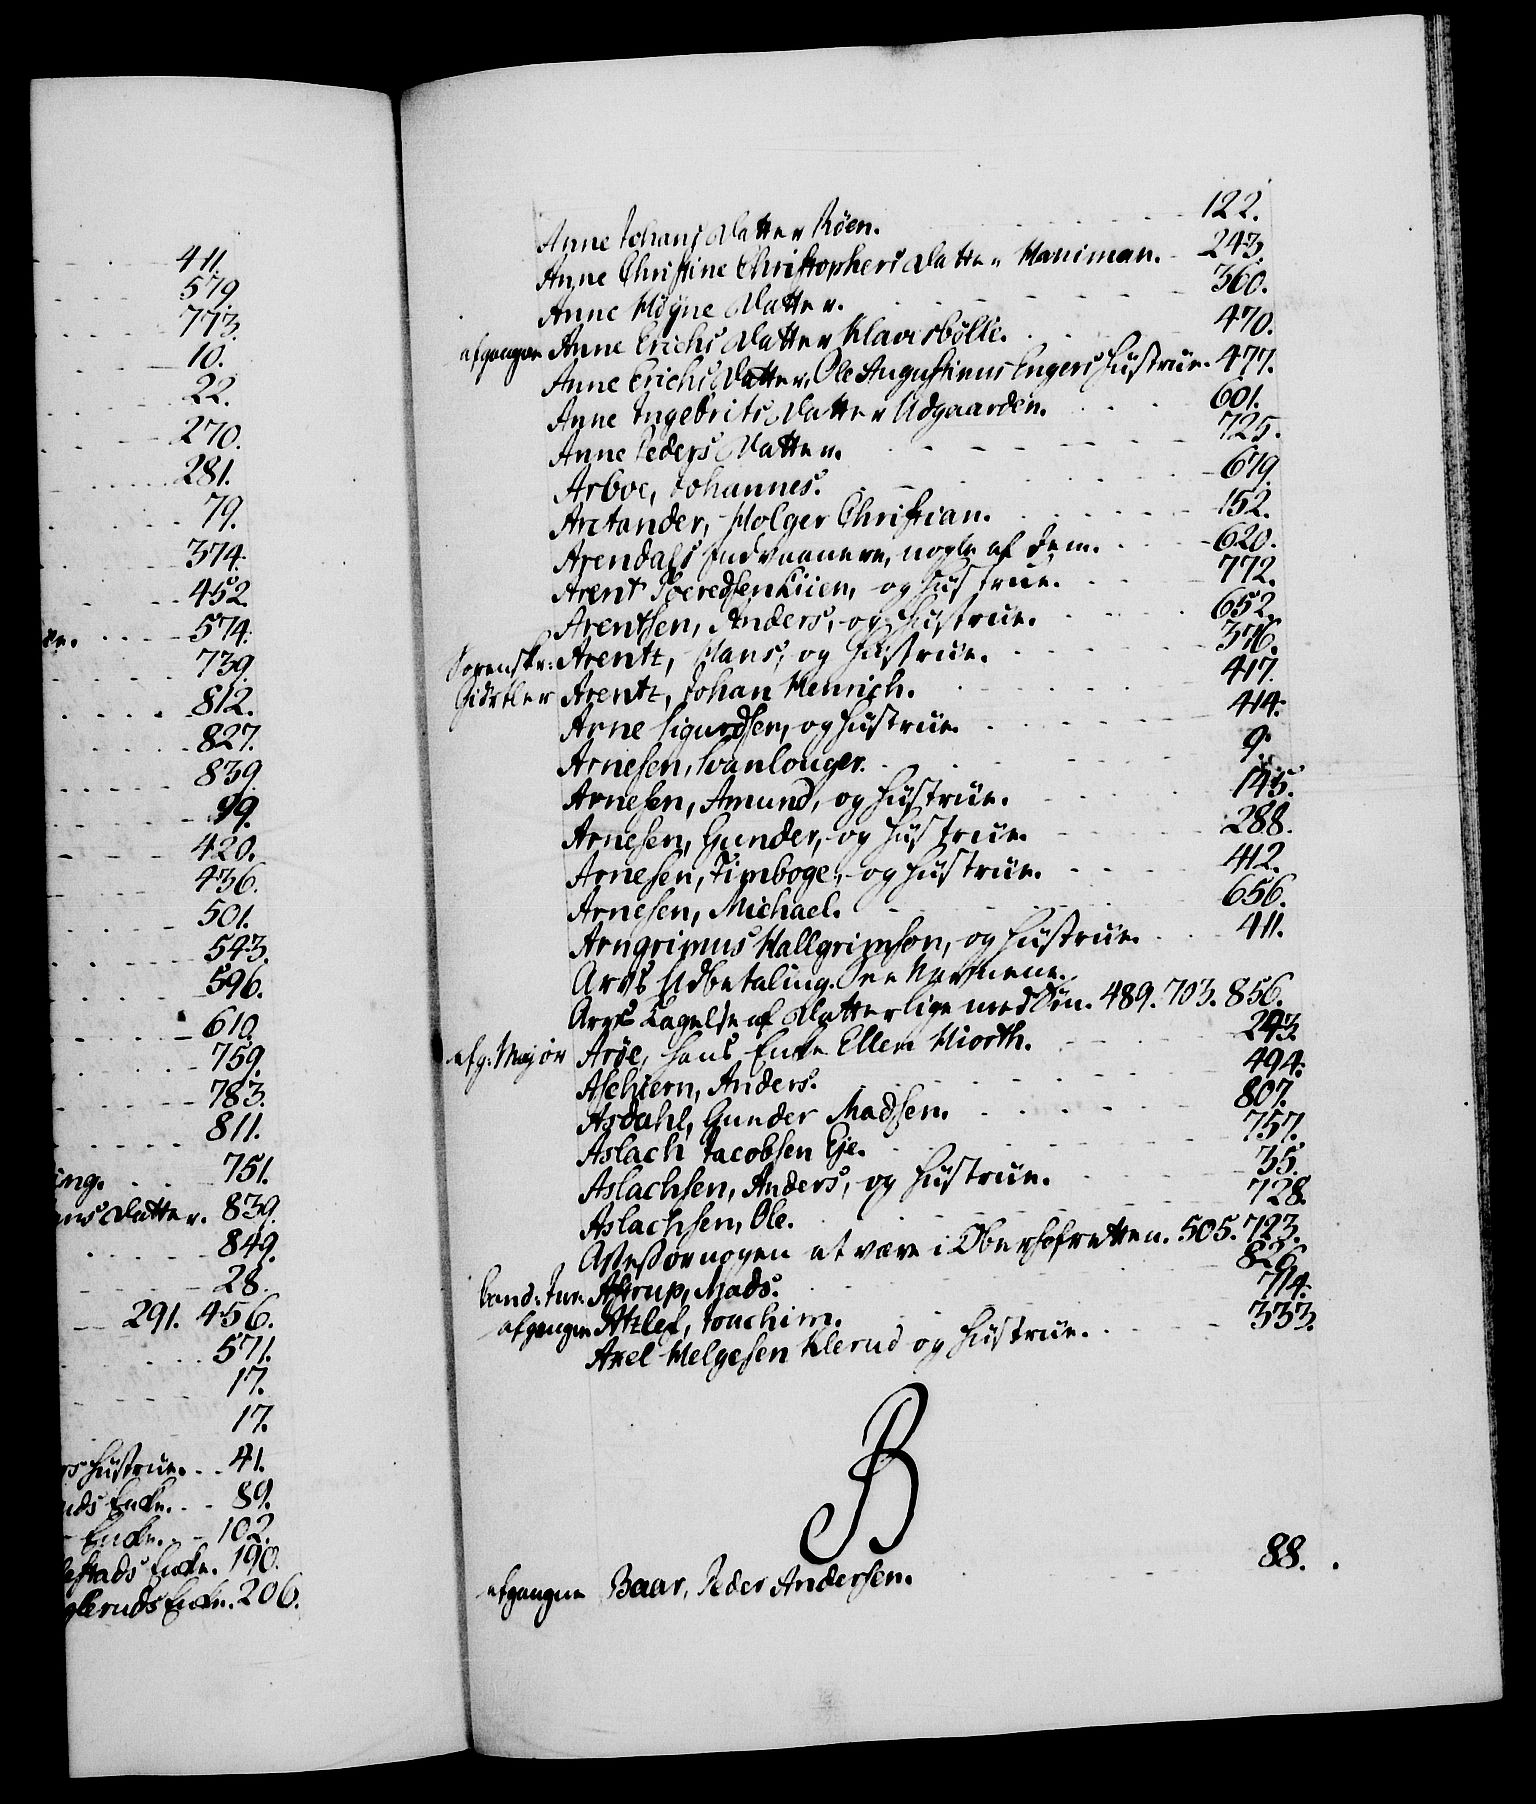 411.
579.
773.
10.
22.
270.
281.
79.
374.
452.
574.
739.
812.
827.
839.
99.
420.
436.
501.
543.
596.
610.
759.
783.
811.
ing. 751.
ns datter. 839.
849.
28.
291. 456.
571.
17.
17.
rs Hustrue. 41.
uds Encke. 89.
Encke. 102.
stads Encke. 190.
gleruds Encke. 206.
Anne Johans datter Röen. 122.
Anne Christine Christophers datter Maniman. 243.
Anne Höyne datter. 360.
afgangne Anne Erichs datter Klavesbölle. 470.
Anne Erichs datter, Ole Augustinus Engers Hustrue. 477.
Anne Ingebrits datter Udgaarden. 601.
Anne Peders datter. 725.
Arboe, Johannes. 679.
Arctander, Holger Christian. 152.
Arendals Indvaanere, nogle af dem. 620.
Arent Sveredsen Liien, og Hustrue. 772.
Arentsen, Anders, og Hustrue. 652.
Sorenskr: Arentz, Hans, og Hustrue. 376.
Gidsler Arentz, Johan Henrich. 417.
Arne Sigurdsen, og Hustrue. 414.
Arnesen, Svanlouger. 9.
Arnesen, Amund, og Hustrue. 145.
Arnesen, Gunder, og Hustrue. 288.
Arnesen, Finboge, og Hustrue. 412.
Arnesen, Michael. 656.
Arngrimus Hallgrimson, og Hustrue. 411.
Arvs Udbetaling. See Navnene.
Arvs Tagelse af datter lige med Sön. 489. 703. 856.
afg: Major Aröe, Hans Encke Ellen Hiorth. 243.
Aschiern, Anders. 494.
Asdahl, Gunder Madsen. 807.
Aslach Jacobsen Eje. 757.
Aslachsen, Anders, og Hustrue. 35.
Aslachsen, Ole. 728.
Assessor nogen at være i Oberhofretten. 505. 723.
Cand: Jur: Astrup, Mads. 826.
afgangne Atzlef, Joachim. 714.
Axel Helgesen Klerud og Hustrue. 333.
B
afgangne Baar, Peder Andersen. 88.